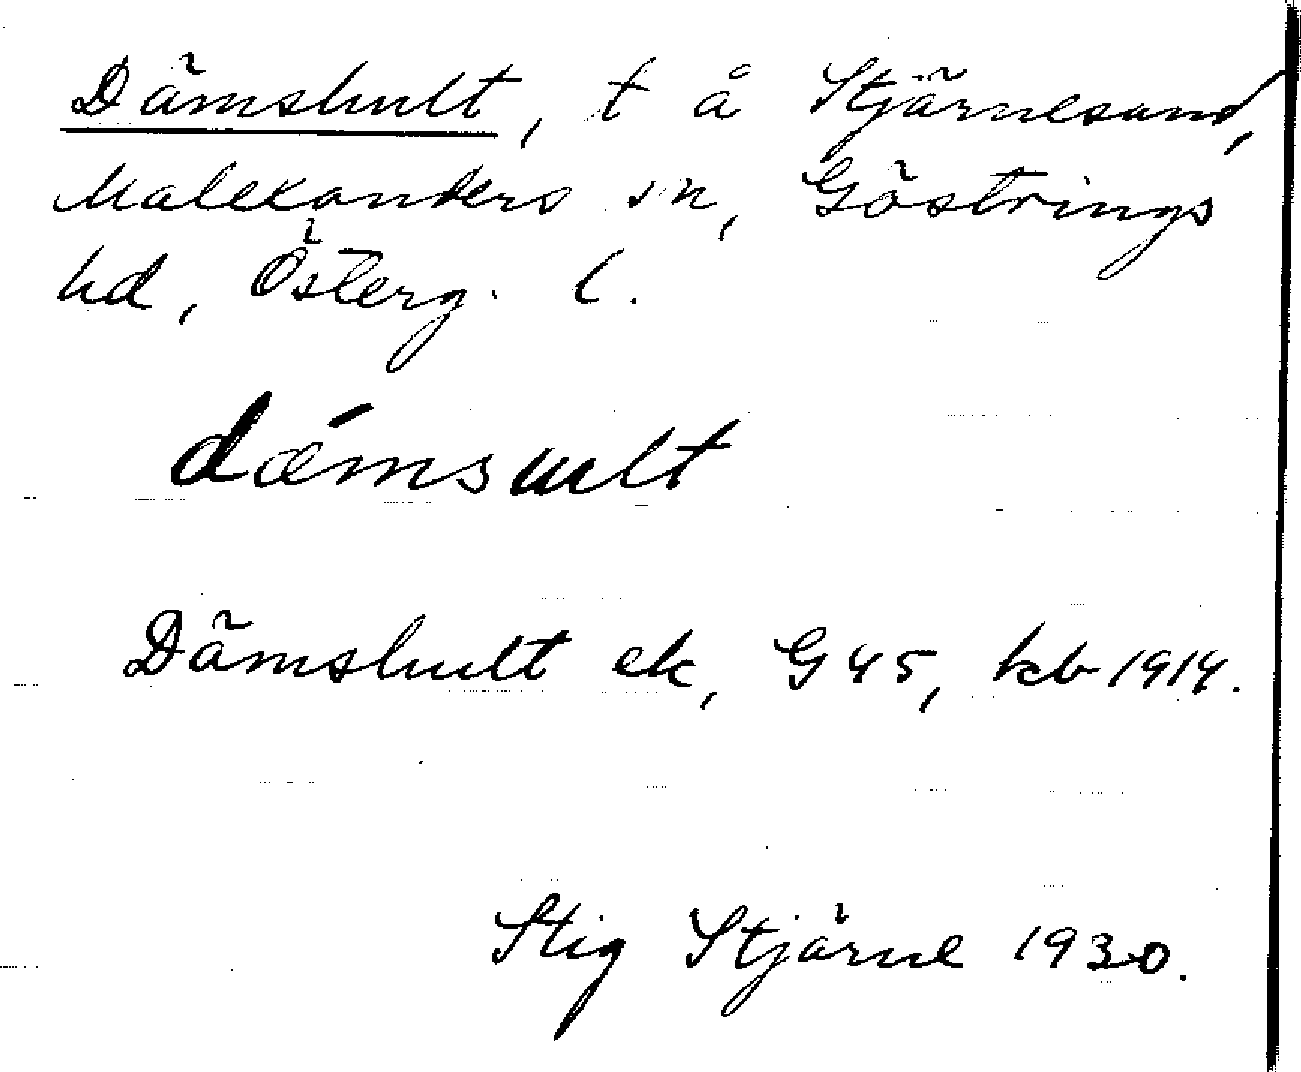 Dämshult, t å Stjärnesand,
Malexanders sn, Göstrings
hd, Österg. l.
dǽmsult
Dämshult ek, G 45, kb 1914.
Stig Stjärne 1930.